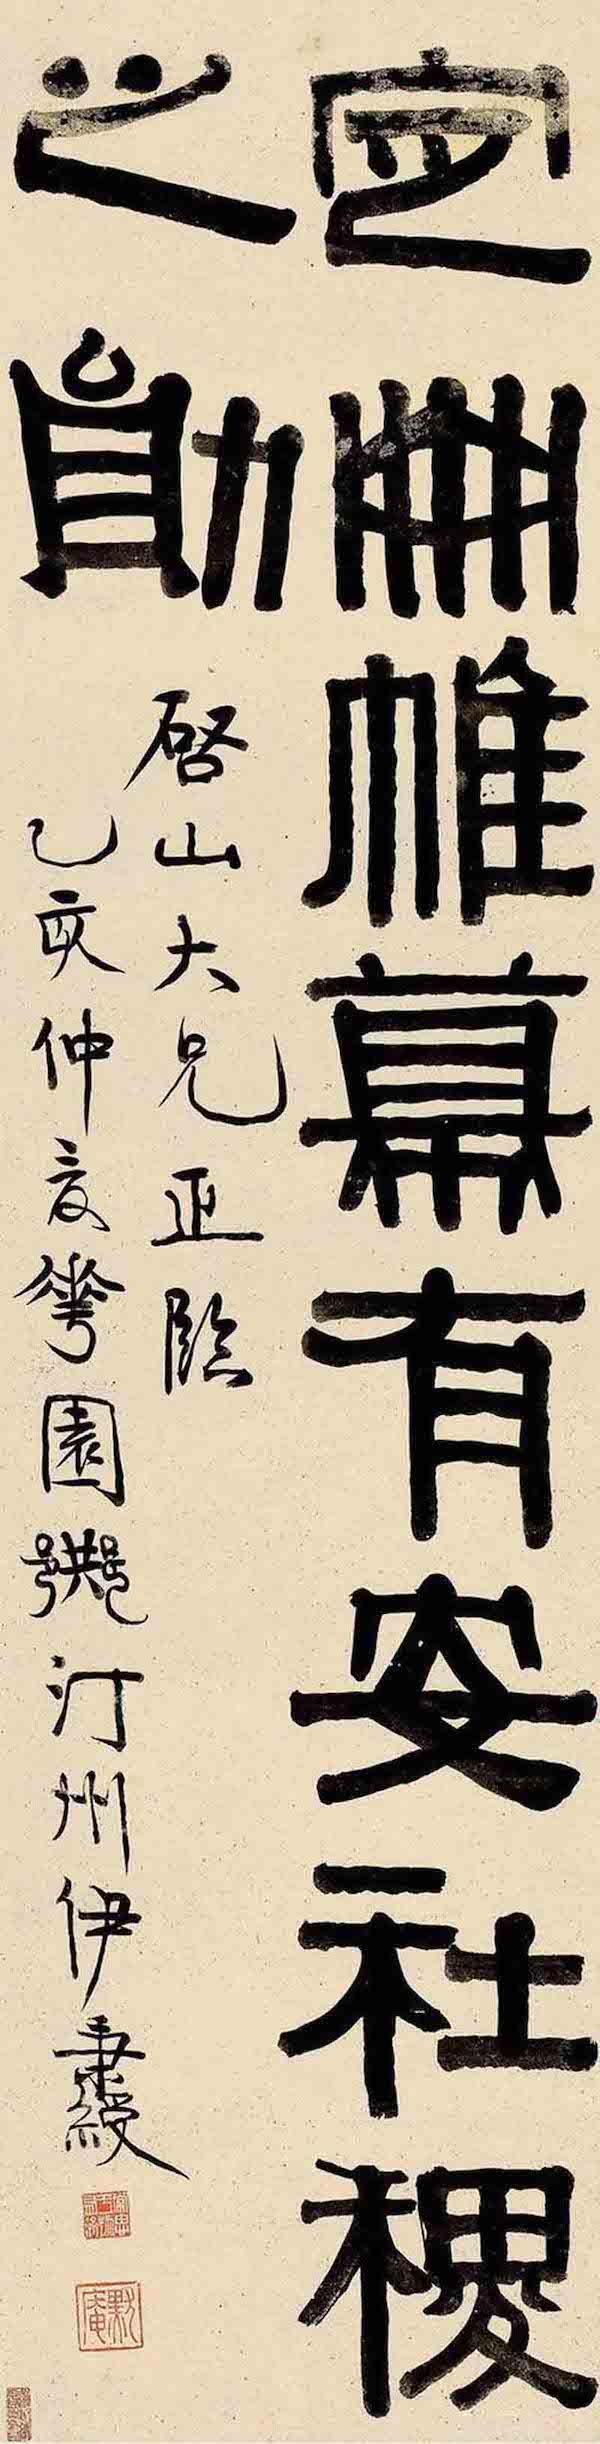 定冊帷幕有安社稷
之勛
啓山大兄正臨
乙亥仲夏華園汀州伊秉綬
默庵